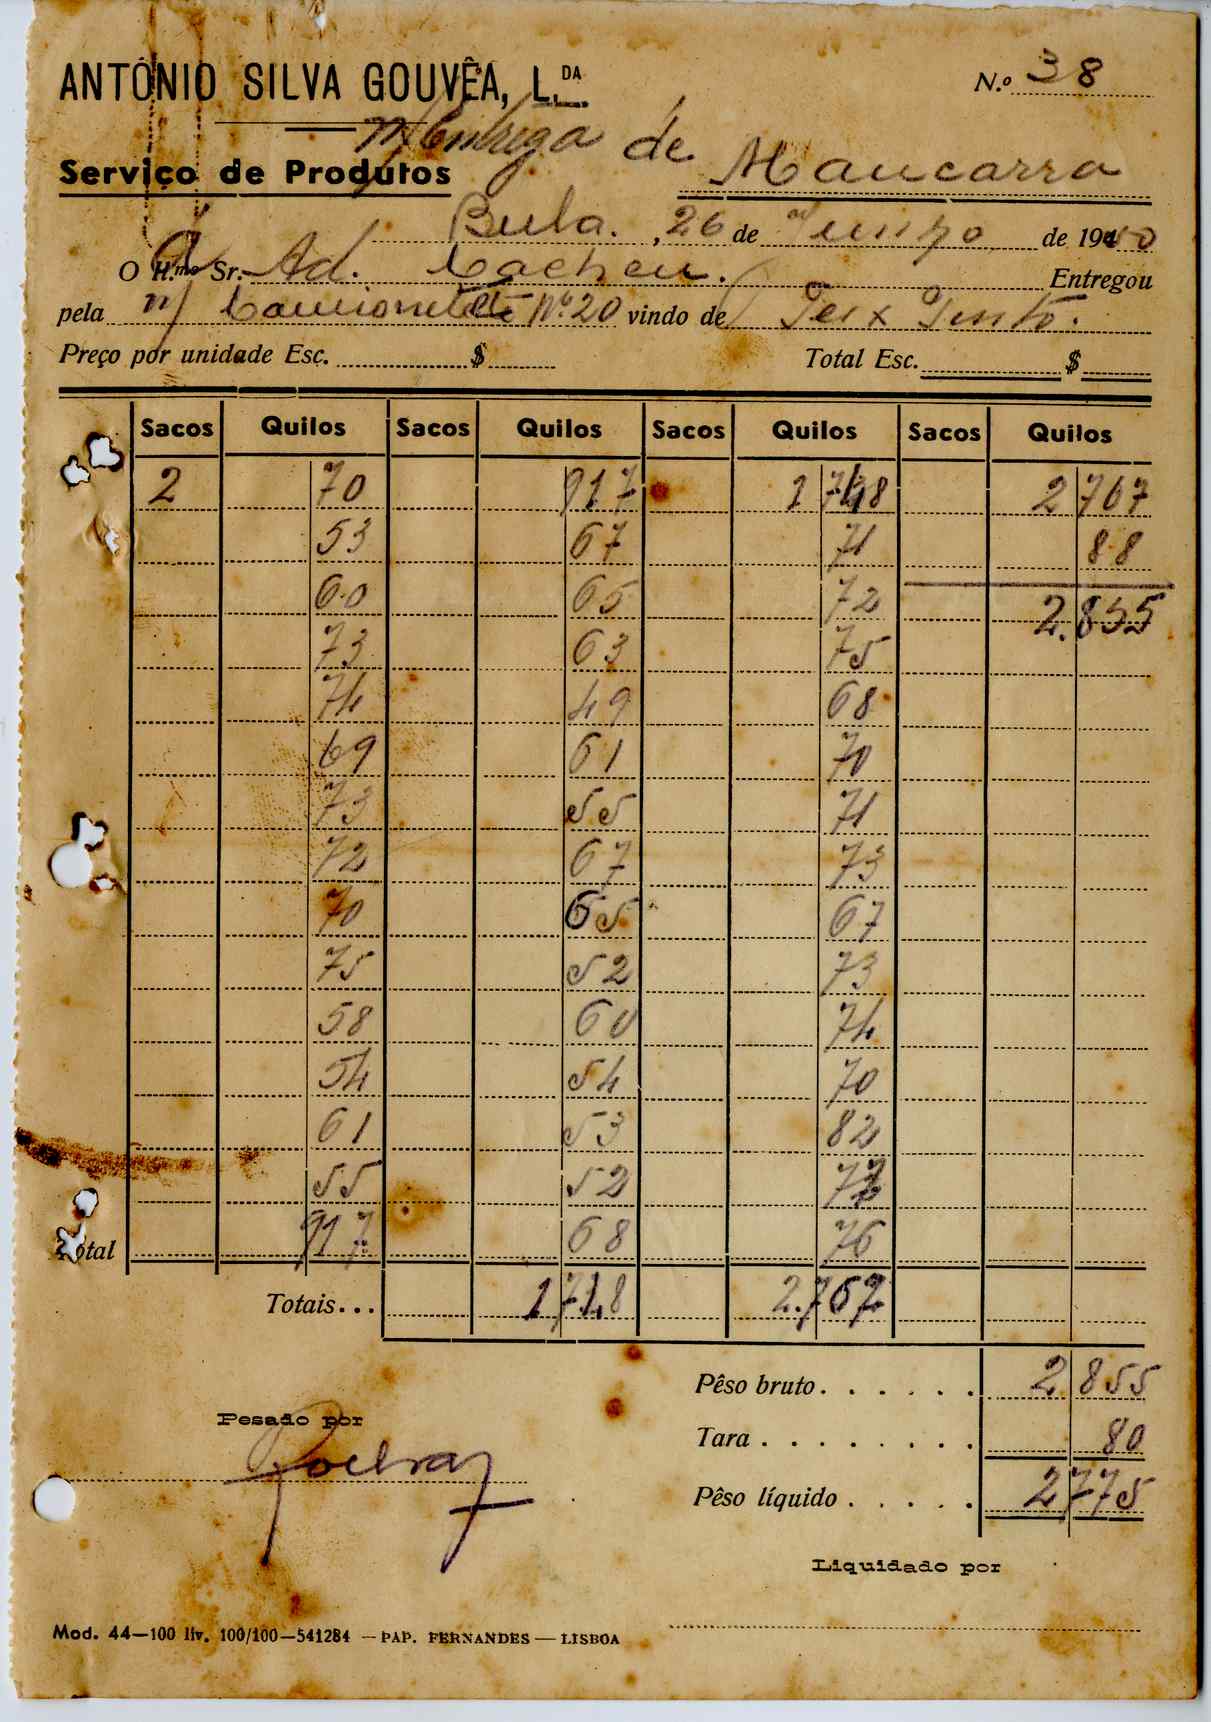 ANTÓNIO SILVA GOUVÊA, L.DA
N.º 38
m/ Entrega de Mancarra
Serviço de Produtos
Bula. , 26 de Junho de 1940
O H.mo Sr. Ad. Cacheu. Entregou
pela m/ Camionete Nº 20 vindo de Teix Pinto.
Preço por unidade Esc. $ Total Esc. $
Sacos Quilos Sacos Quilos Sacos Quilos Sacos Quilos
2 70 917 1 748 2 767
53 67 71 88
60 65 72 2.855
73 63 75
74 49 68
69 61 70
73 55 71
72 67 73
70 65 67
75 52 73
58 60 74
54 54 70
61 53 82
55 52 77
Total 917 68 76
Totais... 1 718 2.767
Pêso bruto . . . . . . 2 855
Pesado por
Tara . . . . . . . . . 80
Pêso líquido . . . . . 2775
Liquidado por
Mod. 44—100 liv. 100/100—541284 — PAP. FERNANDES — LISBOA